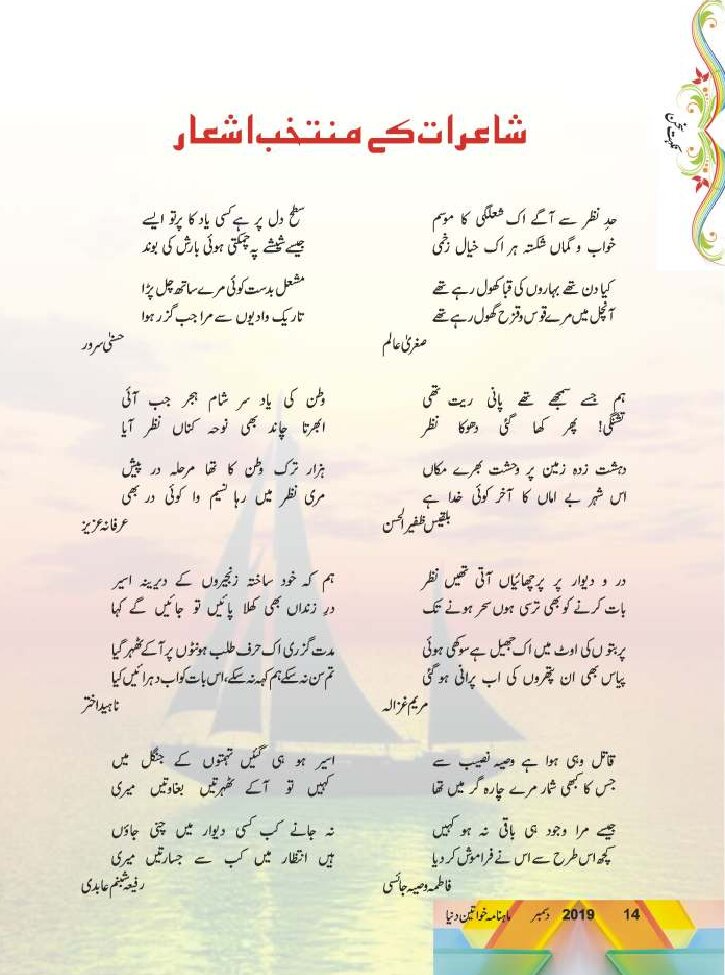 شاعرات کے منتخب اشعار
حدِ نظر سے آگے اک شعلگی کا موسم
خواب و گماں شکستہ ہر اک خیال زخمی
کیا دن تھے بہاروں کی قبا کھول رہے تھے
آنچل میں مرے قوس و قزح گھول رہے تھے
صغریٰ عالم
سطح دل پر ہے کسی یاد کا پرتو ایسے
جیسے شیشے پہ چمکتی ہوئی بارش کی بوند
مشعل بدست کوئی مرے ساتھ چل پڑا
تاریک وادیوں سے مرا جب گزر ہوا
حسنیٰ سرور
ہم جسے سمجھے تھے پانی ریت تھی
تشنگی! پھر کھا گئی دھوکا نظر
دہشت زدہ زمین پر وحشت بھرے مکاں
اس شہر بے اماں کا آخر کوئی خدا ہے
بلقیس ظفیر الحسن
وطن کی یاد سر شام ہجر جب آئی
ابھرتا چاند بھی نوحہ کناں نظر آیا
ہزار ترک وطن کا تھا مرحلہ در پیش
مری نظر میں رہا نسیم وا کوئی در بھی
عرفانہ عزیز
در و دیوار پر پرچھائیاں آتی تھیں نظر
بات کرنے کو بھی ترسی ہوں سحر ہونے تک
پربتوں کی اوٹ میں اک جھیل ہے سوکھی ہوئی
پیاس بھی ان پتھروں کی اب پرانی ہو گئی
مریم غزالہ
ہم کہ خود ساختہ زنجیروں کے دیرینہ اسیر
درِ زنداں بھی کھلا پائیں تو جائیں گے کہا
مدت گزری اک حرف طلب ہونٹوں پر آکے ٹھہر گیا
تم سن نہ سکے ہم کہہ نہ سکے، اس بات کو اب دہرائیں کیا
ناہید اختر
قاتل وہی ہوا ہے وصیہ نصیب سے
جس کا کبھی شمار مرے چارہ گر میں تھا
جیسے مرا وجود ہی باقی نہ ہو کہیں
کچھ اس طرح سے اس نے فراموش کر دیا
فاطمہ وصیہ جائسی
اسیر ہو ہی گئیں تہمتوں کے جنگل میں
کہیں تو آکے ٹھہرتیں بغاوتیں میری
نہ جانے کب کسی دیوار میں چنی جاؤں
ہیں انتظار میں کب سے جسارتیں میری
رفیعہ شبنم عابدی
ماہنامہ خواتین دنیا دسمبر 2019 14